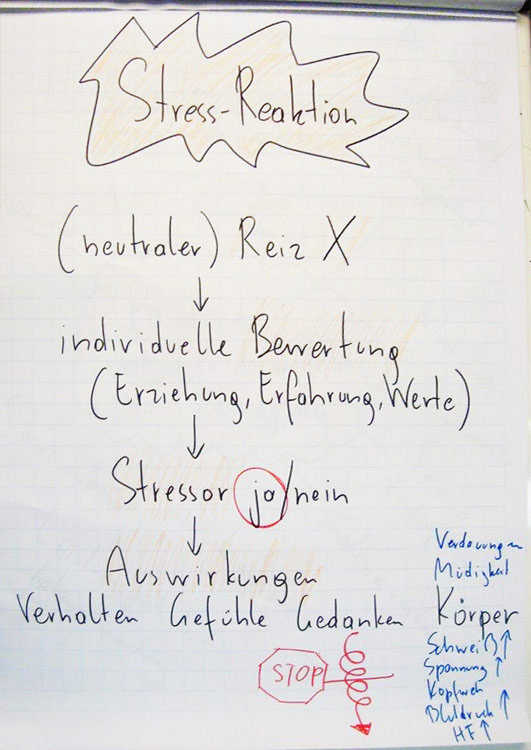 Stress-Reaktion
(neutraler) Reiz X
↓
individuelle Bewertung
(Erziehung, Erfahrung, Werte)
↓
Stressor ja/nein
↓
Auswirkungen
Verhalten Gefühle Gedanken Körper
Verdauung
Müdigkeit
Schweiß↑
Spannung↑
Kopfweh
Blutdruck↑
HF↑
STOP